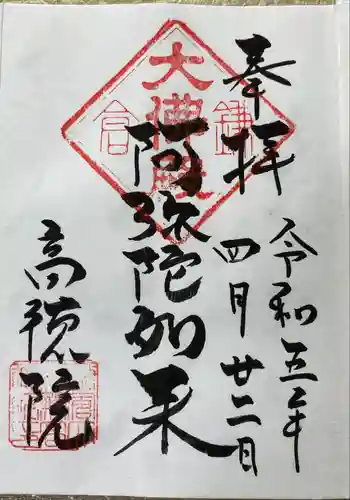 奉拝
令和五年
四月廿二日
大佛殿
鎌倉
阿弥陀如来
高徳院